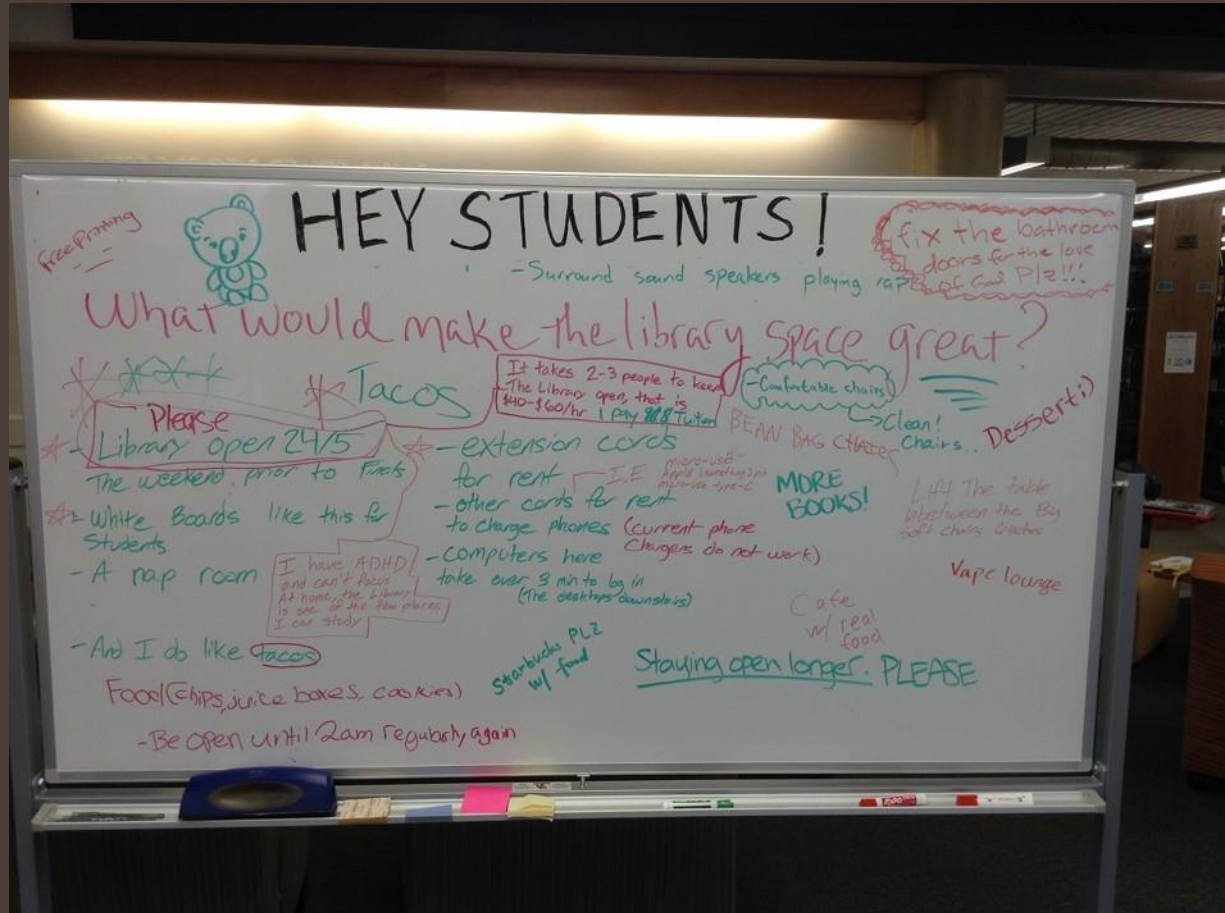 Free Printing
HEY STUDENTS!
- Surround sound speakers playing rap
fix the bathroom
doors for the love
of God Plz!!!
What would make the library space great?
Tacos
It takes 2-3 people to keep
The Library open, that is
$40-$60/hr I pay Tuition
- Comfortable chairs
Clean!
Chairs..
BEAN BAG CHAIRS
Dessert :)
Please
- Library open 24/5
The weekend prior to Finals
- White Boards like this for
Students
- A nap room
I have ADHD
and can't focus
At home, the Library
is one of the few places
I can study
- And I do like tacos
Food (Chips, juice boxes, cookies)
- Be open until 2am regularly again
- extension cords
for rent
I.E
micro-USB
Apple
type-C
- other cords for rent
to charge phones (current phone
Chargers do not work)
- computers here
take over 3 min to log in
(The desktops downstairs)
Starbucks PLZ
w/ food
MORE
BOOKS!
Lift The table
inbetween the Big
soft chairs
Vape lounge
Cafe
w/ real
food
Staying open longer. PLEASE
EXPO